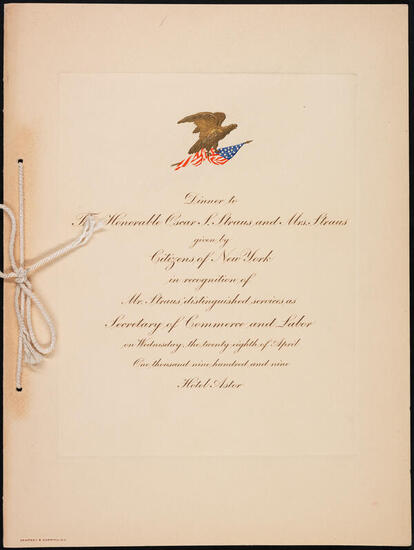 Dinner to
The Honorable Oscar S. Straus, and Mrs. Straus
given by
Citizens of New York
in recognition of
Mr. Straus' distinguished services as
Secretary of Commerce and Labor
on Wednesday, the twenty eighth of April
One thousand nine hundred and nine
Hotel Astor
DEMPSEY & CARROLL, N.Y.